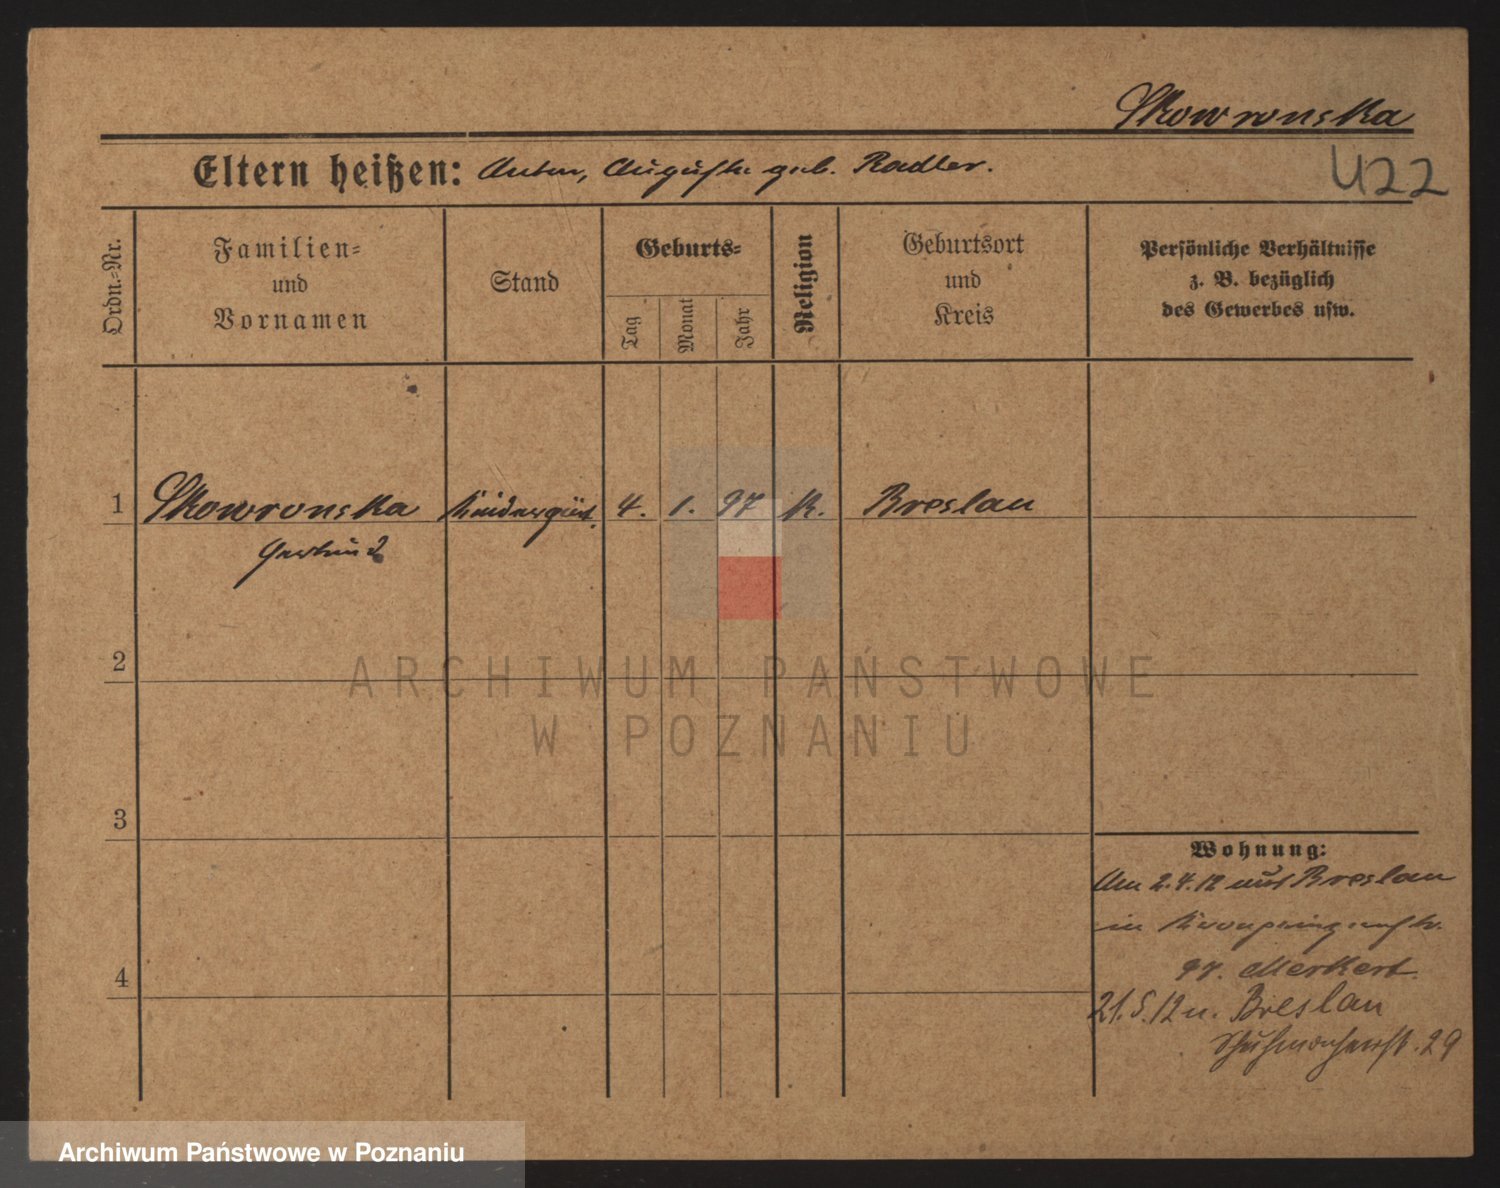 Skowronska
Eltern heißen: Anton, Auguste geb. Radler.
422
Ordn.-Nr.
Familien-
und
Vornamen
Stand
Geburts-
Tag
Monat
Jahr
Religion
Geburtsort
und
Kreis
Persönliche Verhältnisse
z. B. bezüglich
des Gewerbes usw.
1 Skowronska Kindergärt. 4. 1. 97 K. Breslau
Gertrud
2
ARCHIWUM PAŃSTWOWE
W POZNANIU
3
Wohnung:
Am 2.4.12 aus Breslau
in Kronprinzenstr.
97. Merkert
4
21.5.12 n. Breslau
Schuhmacherstr. 29
Archiwum Państwowe w Poznaniu